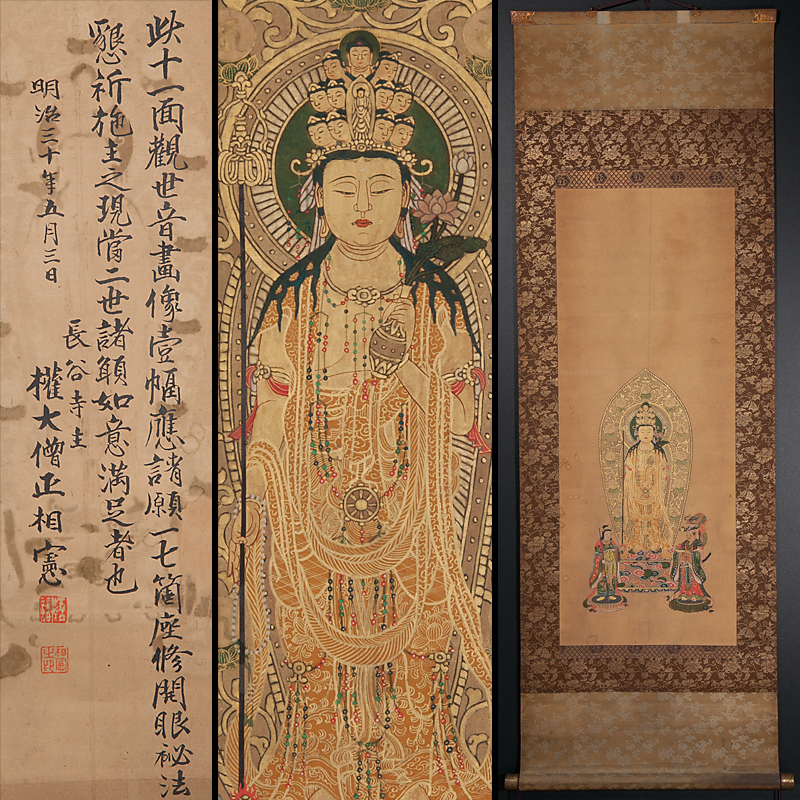 此十一面觀世音畫像壹幅應請願一七箇座修開眼祕法
懇祈施主之現當二世諸願如意滿足者也
明治三十年五月三日
長谷寺主
權大僧正相憲